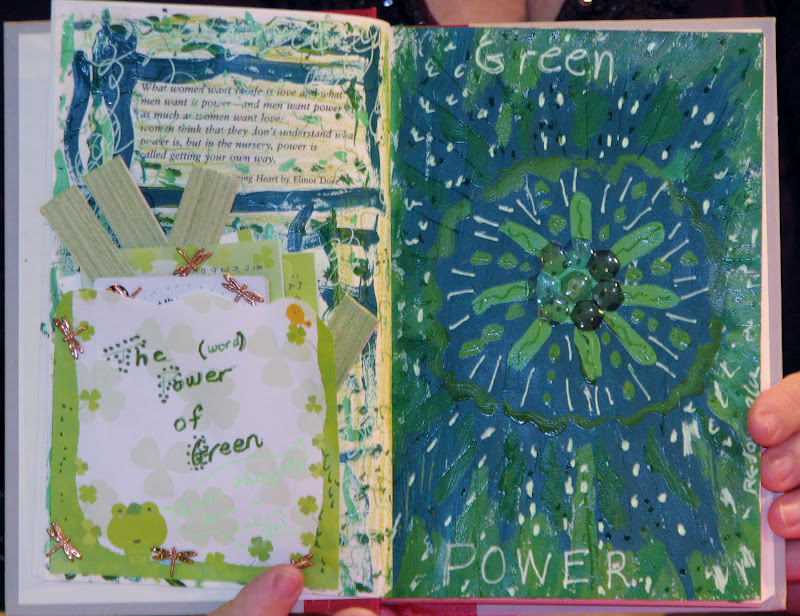 What women want i life is love and what
men want is power—and men want power
as much as women want love;
women think that they don't understand wha
power is, but in the nursery, power is
called getting your own way.
rong Heart by Elinor Dove
The (word)
Power
of
Green
Green
POWER